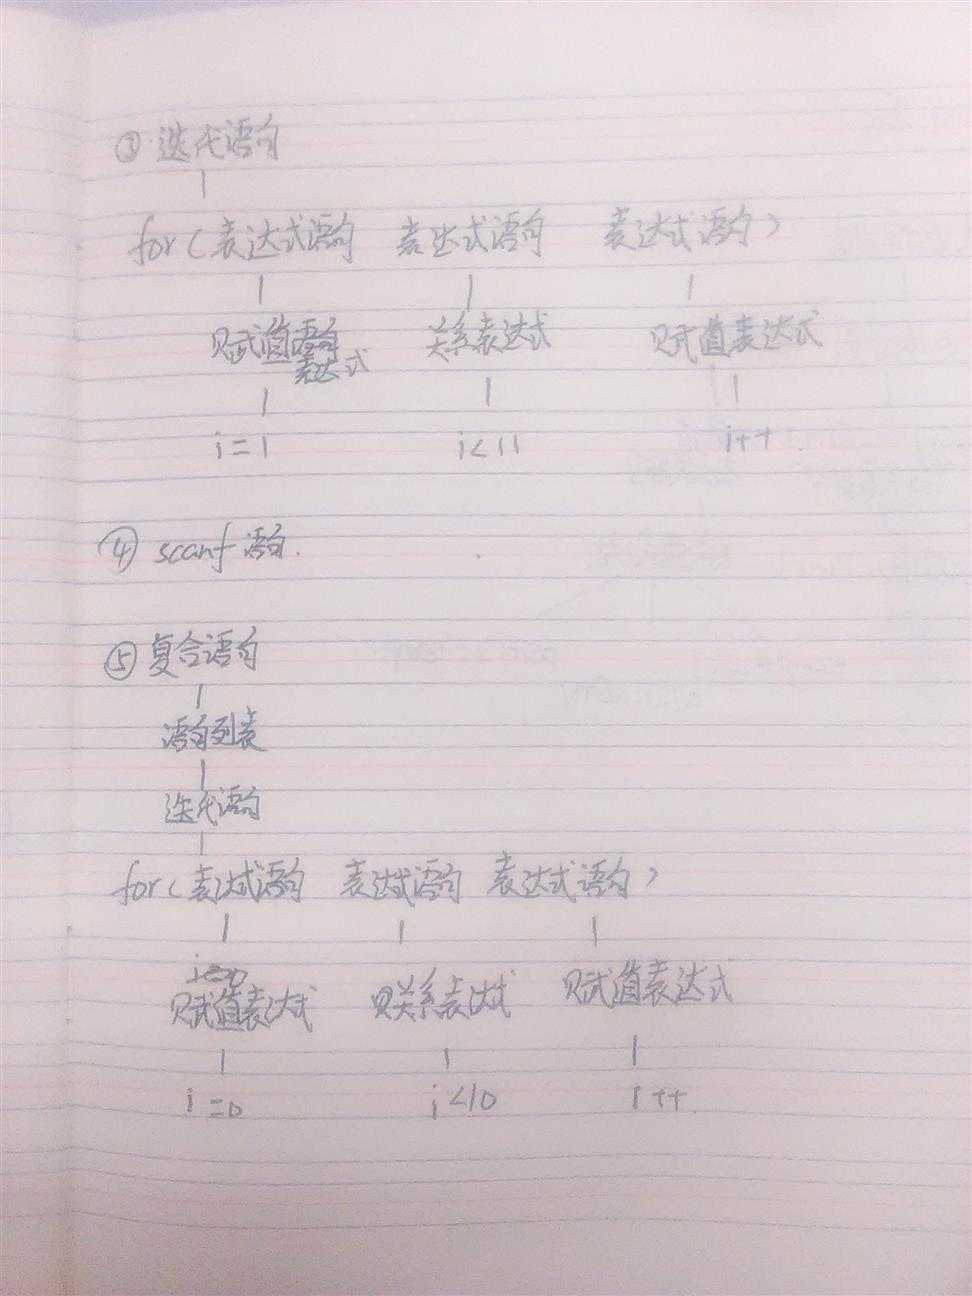 ③ 迭代语句
for(表达式语句 表达式语句 表达式语句)
赋值语句 关系表达式 赋值表达式
表达式
i=1 i<11 i++
④ scanf 语句.
⑤ 复合语句
语句列表
迭代语句
for(表达式语句 表达式语句 表达式语句)
i=0
赋值表达式 关系表达式 赋值表达式
i=0 i<10 i++